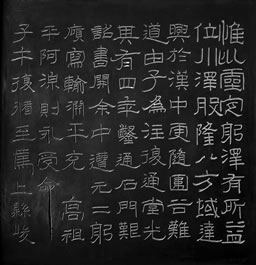 惟巛靈定躬澤有所益
位川澤股隆八方域達
興於漢中更隨圍谷難
道由子為往復通堂光
其有四年鑿通石門難
詔書開余中遭元二躬
廣寫輸淵平充高祖
平阿涼則永受命
子午復循至焉上縣峻